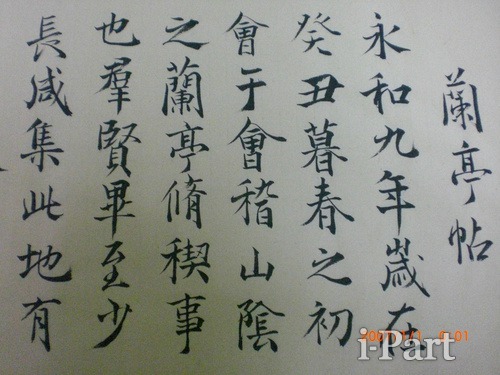 蘭亭帖
永和九年歲在
癸丑暮春之初
會于會稽山陰
之蘭亭脩稧事
也羣賢畢至少
長咸集此地有
i-Part